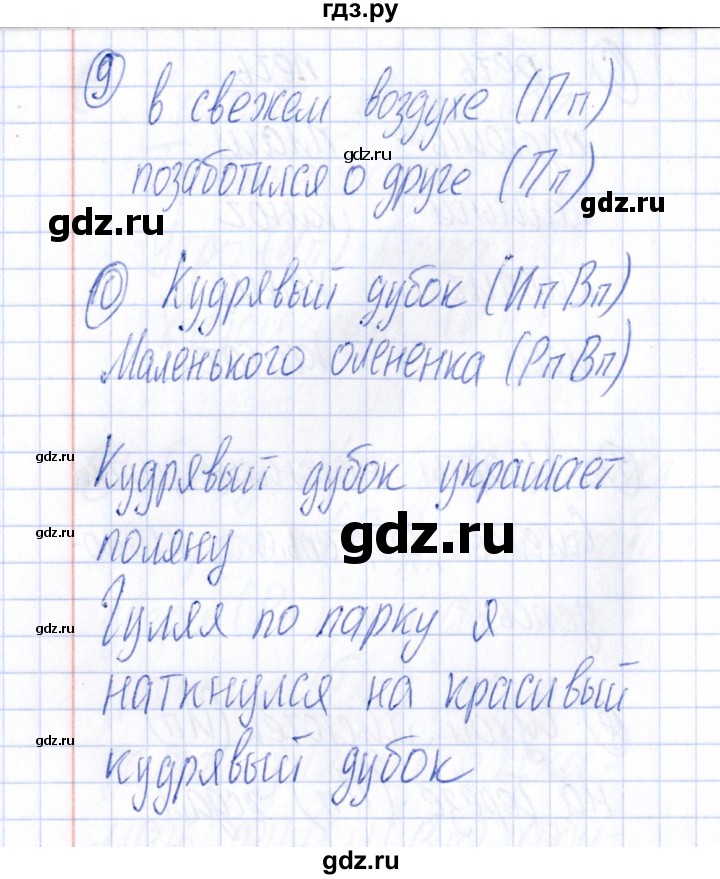 гдз.ру
9 в свежем воздухе (Пп)
gdz.ru
позаботился о друге (Пп)
gdz.ru
gdz.ru
10 Кудрявый дубок (Ип Вп)
Маленького олененка (Рп Вп)
gdz.ru
Кудрявый дубок украшает
gdz.ru
поляну
gdz.ru
Гуляя по парку я
gdz.ru
наткнулся на красивый
gdz.ru
кудрявый дубок
gdz.ru